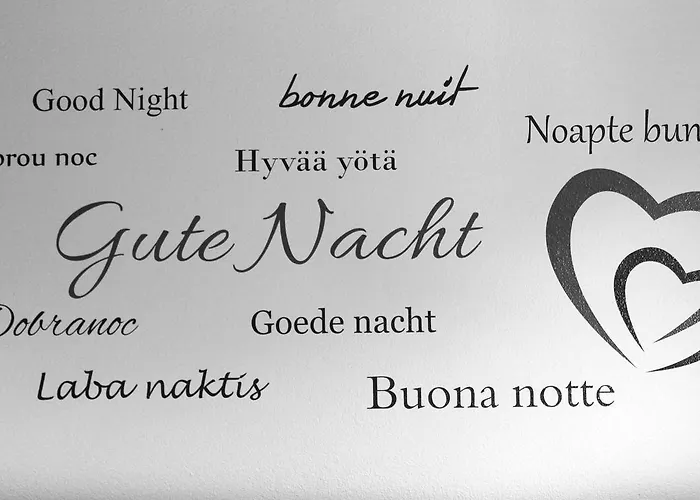 Good Night
bonne nuit
Noapte bun
brou noc
Hyvää yötä
Gute Nacht
Dobranoc
Goede nacht
Laba naktis
Buona notte